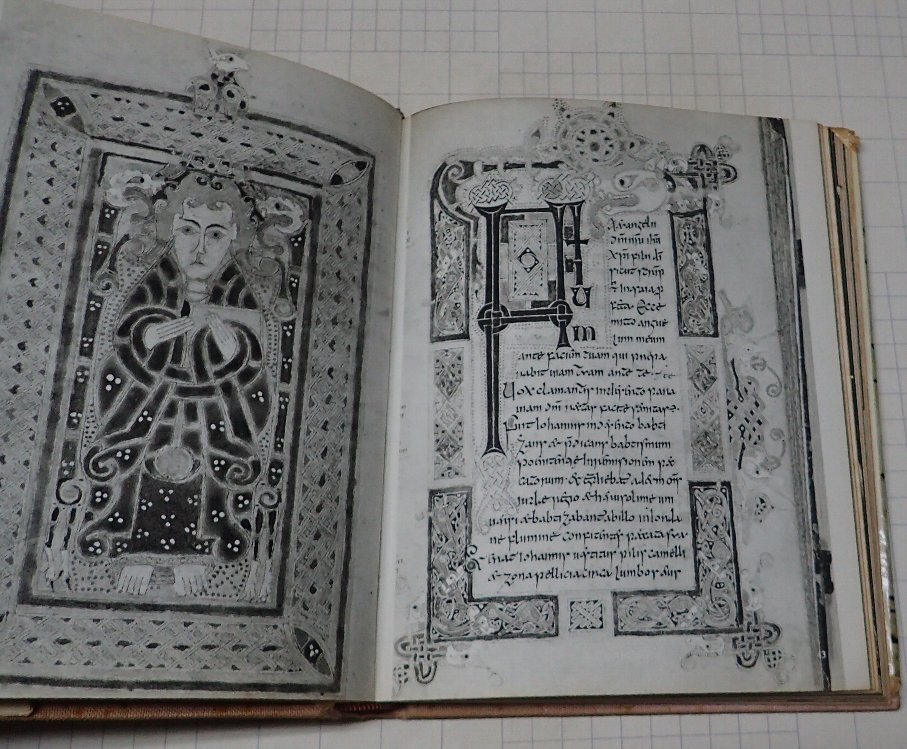 euangelii
dni nri ihu
xpi fili di
sicut
in esaia p
feta Ecce
mitto angue
lum meum
ante faciem tuam qui prepa
rabit uiam tuam ante te
Uox clamantis in deserto parate
uiam dni rectas facite semitas e
Fuit iohannis in deserto babti
zans et predicans babtismum
penitentie in remisionem pec
catorum et egrediebat ad eum om
iudeae regio et
uniuersi et babtizabant ab illo in iorda
ne flumine confitentes peccata sua
Et erat iohannis uestitus pilis camelli
et zona pellicia circa lumbos eius